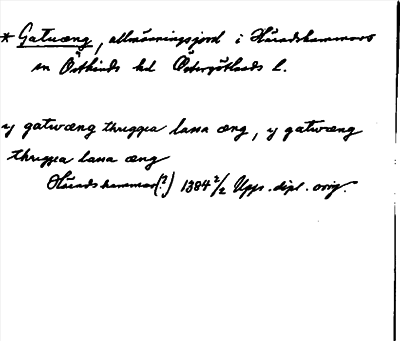 * Gatuæng, allmänningsjord i Häradshammars
sn Östkinds hd Östergötlands l.
ij gatwæng thriggia lassa æng, ij gatwæng
thriggia lassa æng
Häradshammar(?) 1384 2/2 Upps. dipl. orig.